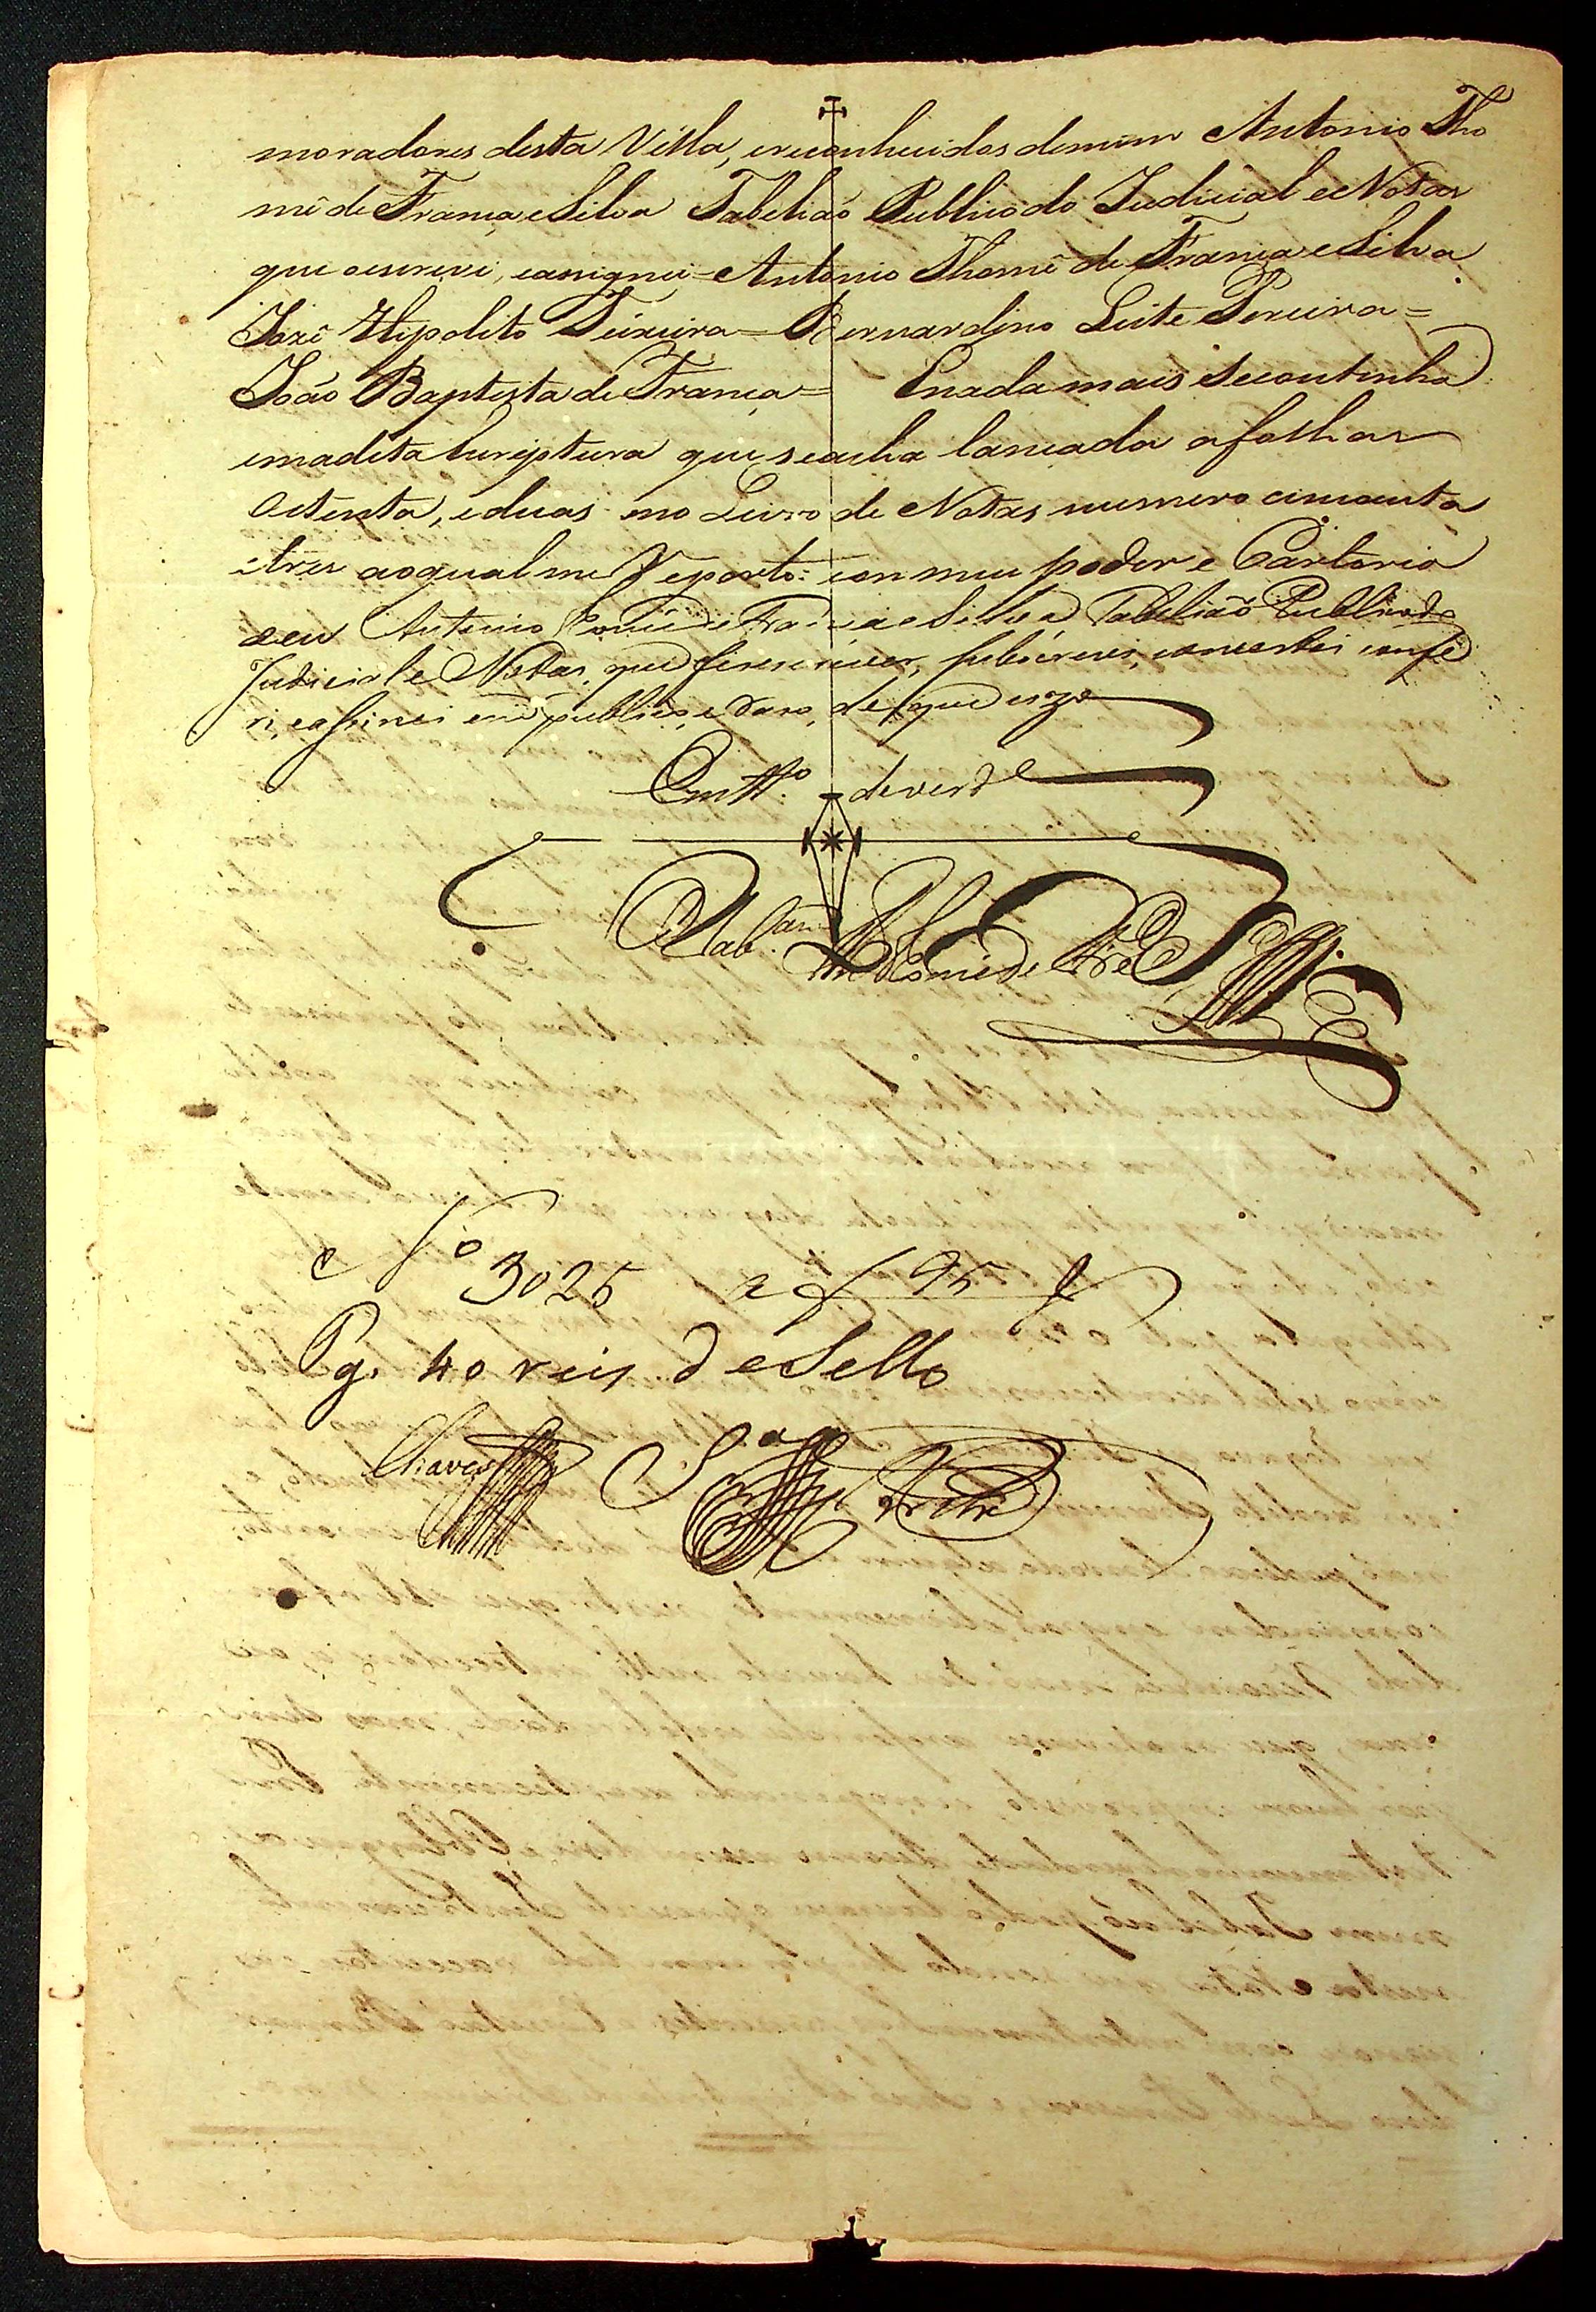 moradores desta Villa, ereconhecidos demim Antonio Tho
mé de França eSilva Tabeliaõ Publico do Judicial eNotas
que oescrevi, eassignei = Antonio Thomé de França eSilva
José Hipolito Teixeira = Bernardino Leite Pereira =
Joaõ Baptista de França = Enadamais Secontinha
emadita Escriptura que seacha lancada afolhas
Oitenta, eduas no Livro de Notas numero cincoenta
etres aoqual me Reporto: em meu poder e Cartorio
eeu Antonio Thomé de França eSilva Tabeliaõ Publico do
Judicial e Notas, que fiz escrever, subscrevi, concertei confe
ri, eassinei em publico, e raso, de que uzo
Em tto. deverde
Tabam Anto Thomé de Fra
No 3025 a f 95
Pg. 40 reis deSello
Chaves